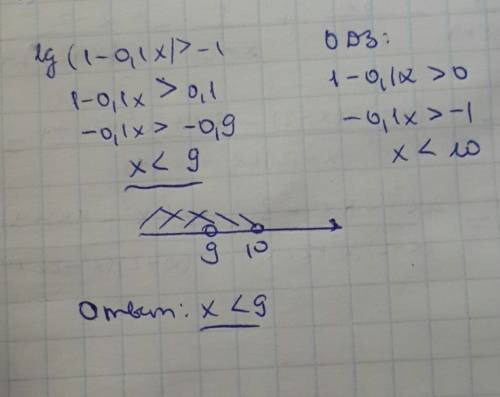 lg (1-0,1x)>-1
1-0,1x > 0,1
-0,1x > -0,9
x < 9
ОДЗ:
1-0,1x > 0
-0,1x > -1
x < 10
9 10
Ответ: x < 9